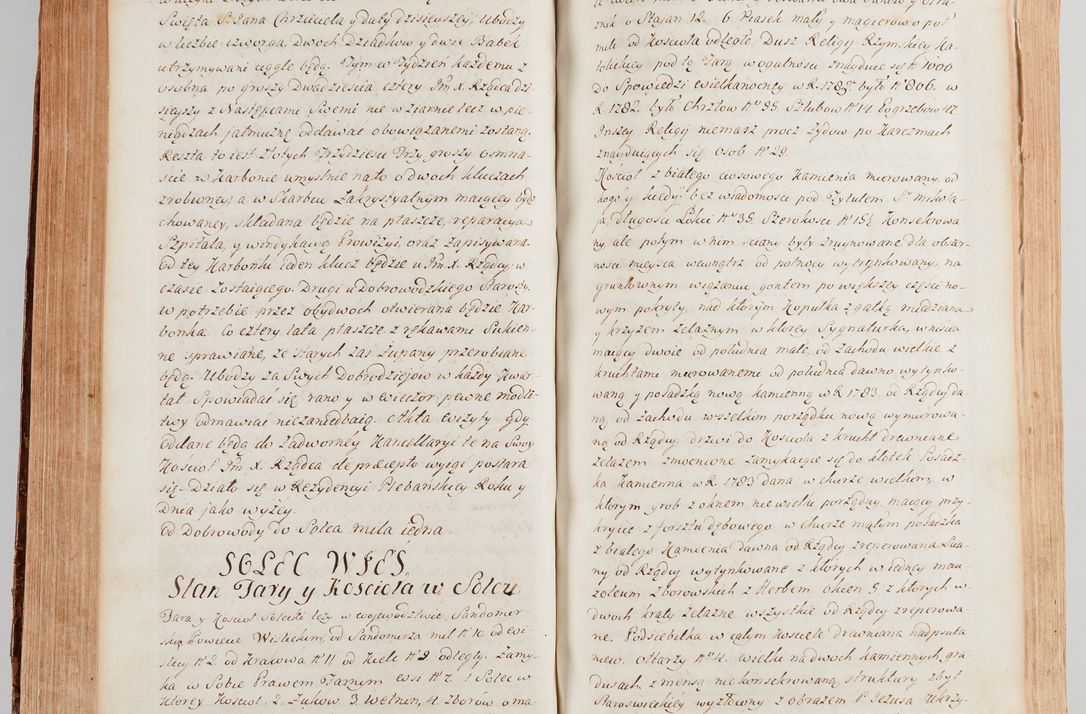 Święta S. Jana Chrzciciela y daty dzisieyszey, Ubodzy
w liczbie czworga, Dwoch Dziadkow y dwie Babek
utrzymywani ciągle będą. Tym co Tydzien każdemu z
osobna po groszy Dwadziescia cztery Jm. X. Rządca dzi-
sieyszy z Następcami Swemi nie w ziarnie lecz w pie-
niądzach jałmużnę oddawać obowiązanemi zostaną.
Reszta to iest Złotych Trzydziesci Trzy groszy osmna-
scie w Karbonie umyslnie na to o dwoch kluczach
zrobioney, a w Skarbcu Zakrystyalnym maiącey bydź
chowaney, składana będzie na płaszcze, reparacyą
Szpitala, y windykawą Prowizyi oraz zapisywana.
Od tey Karbonki ieden klucz będzie u Jm. X. Rządcy, w
czasie Zostaiącego. Drugi u Dobrowodzkiego Starosty,
w potrzebie przez obydwoch otwierana będzie Kar-
bonka. Co cztery lata płaszcze z rękawami Sukien-
ne sprawiane, ze starych zaś Zupany przerobiane
będą. Ubodzy za Swych Dobrodziejow w każdy Kwar-
tał Spowiadać się, rano y w wieczor pewne modli-
twy odmawiać niezaniedbaią. Akta wizyty gdy
Oddane będą do Zadworney Kancellaryi te na Swoy
Kosciół Jm. X. Rządca de praecepto wyiąć postara
się. Działo się w Rezydencyi Plebańskiey Roku y
Dnia jako wyżey.
Od Dobrowody do Solca mila iedna.
SOLEC WIES,
Stan Fary y Kościoła w Solcu
Fara y Kosciół Solecki leży w wojewodztwie Sandomir-
skim Powiecie Wislickim, od Sandomirza mil N 10 od Wi-
slicy N 2 od Krakowa N 11 od Kielc N 9 odległy. Zamy-
ka w Sobie Prawem Farnym wsi N 7. 1 Solec w
ktorey Kosciol. 2. Zuków 3. Wełnin, 4. Zborów o ma-
znik o Stajan 12. 6 Piasek mały y magierow o poł
mile od Kościoła odległe. Dusz Religij Rzymskiey Ka-
tolickiey pod tę Farę w ogulności znajduie się N 1000
Do Spowiedzi wielkanocney w R. 1782 było N 806. w
R. 1782. było Chrztow N 38. Szlubow N 14 Pogrzebow 47.
Inszey Religij niemasz procz Żydow po Karczmach
znayduiących się Osob N 29.
Kosciol z białego ciosowego Kamienia murowany, od
kogo y kiedy? bez wiadomosci pod Tytułem S. mikoła-
ja, długosci Łokci N 35 Szerokosci N 15½ Konsekrowa-
ny, ale potym w nim sciany były zruynowane dla obszer-
nosci mieysca wewnątrz od połnocy wytynkowany, na
gruntownym wiązaniu gontem po większey częsci no-
wym pokryty, nad ktorym Kopułka z gałką miedziana
y krzyżem żelaznym, w ktorey Sygnaturka, wniscia
maiący dwoie od południa małe, od Zachodu wielkie z
kruchtami murowanemi od południa dawno wytynko-
waną y posadzką nową kamienną w R 1783 od Rządcy da-
ną, od zachodu wszelkim porządku nową wymurowa-
ną od Rządcy, drzwi do Kosciola z krucht drewniane
żelazem zmocnione zamykaiące się do kłotek Posadz-
ka Kamienna w R. 1783 dana w churze wielkim, w
ktorym grob z oknem nie wielki porządny maiący przy-
krycie z forsztu dębowego. w Churze małym posadzka
z białego Kamienia dawna od Rządcy zreperowana Scia-
ny od Rządcy wytynkowane z ktorych w iedney mau-
zoleum Zborowskich z Herbem, okien 5 z ktorych w
dwoch kraty żelazne, wszystkie od Rządcy zreperowa-
ne. Podsiebitka w całym Kosciele drewniana nadpsuta
niew. Ołtarzy N 4. wielki na dwoch kamiennych gra-
dusach, z mensą nie konsekrowaną struktury zbyt
Staroswieckiey wyzłocony z obrazem P. Jezusa Ukrzy-